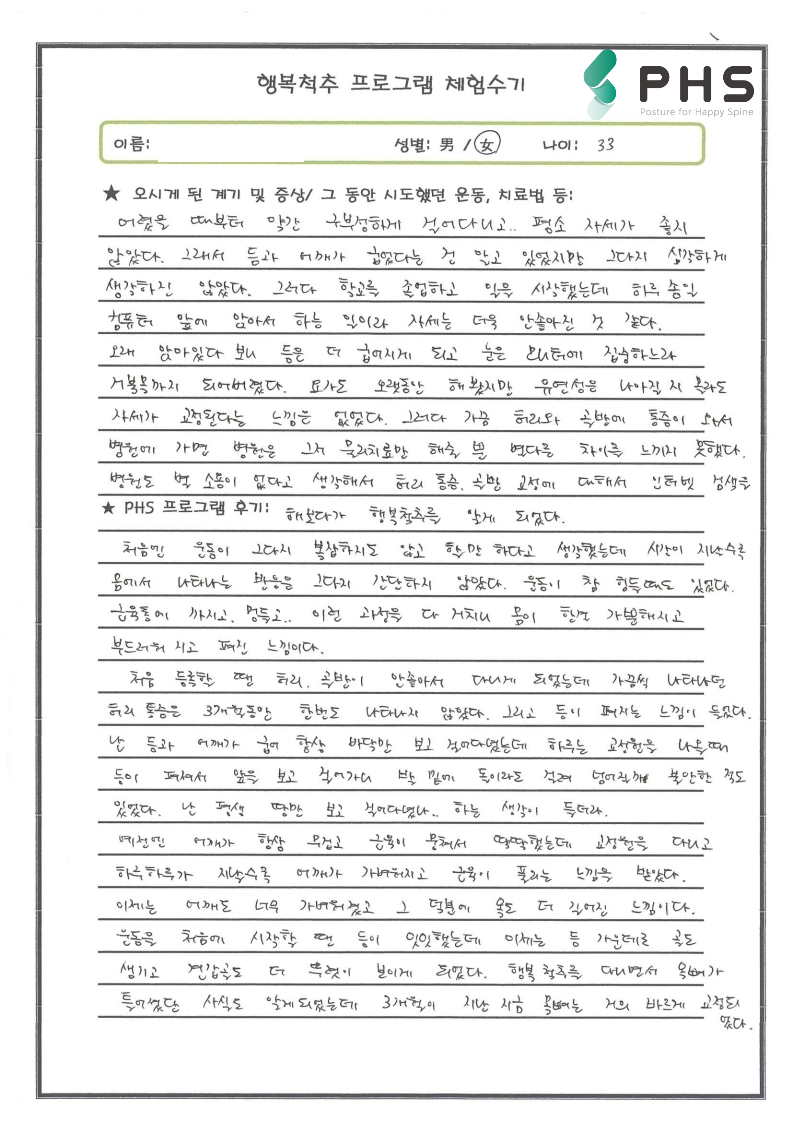 PHS
Posture for Happy Spine
행복척추 프로그램 체험수기
이름: 성별: 男 / 女 나이: 33
★ 오시게 된 계기 및 증상/ 그 동안 시도했던 운동, 치료법 등:
어렸을 때부터 약간 구부정하게 걸어다니고.. 평소 자세가 좋지
않았다. 그래서 등과 어깨가 굽었다는 건 알고 있었지만 그다지 심각하게
생각하진 않았다. 그러다 학교를 졸업하고 일을 시작했는데 하루 종일
컴퓨터 앞에 앉아서 하는 일이라 자세는 더욱 안좋아진 것 같다.
오래 앉아있다 보니 등은 더 굽어지게 되고 눈은 모니터에 집중하느라
거북목까지 되어버렸다. 요가도 오랫동안 해봤지만 유연성은 나아질 지 몰라도
자세가 교정된다는 느낌은 없었다. 그러다 가끔 허리와 골반에 통증이 와서
병원에 가면 병원은 그저 물리치료만 해줄 뿐 별다른 차이를 느끼지 못했다.
병원도 별 소용이 없다고 생각해서 허리 통증, 골반 교정에 대해서 인터넷 검색을
★ PHS 프로그램 후기: 해보다가 행복척추를 알게 되었다.
처음엔 운동이 그다지 복잡하지도 않고 할만 하다고 생각했는데 시간이 지날수록
몸에서 나타나는 반응은 그다지 간단하지 않았다. 운동이 참 힘들때도 있었다.
근육통에 까지고, 멍들고.. 이런 과정을 다 거치니 몸이 한결 가뿐해지고
부드러워 지고 펴진 느낌이다.
처음 등록할 땐 허리, 골반이 안좋아서 다니게 되었는데 가끔씩 나타나던
허리 통증은 3개월동안 한번도 나타나지 않았다. 그리고 등이 펴지는 느낌이 들었다.
난 등과 어깨가 굽어 항상 바닥만 보고 걸어다녔는데 하루는 교정원을 나올때
등이 펴져서 앞을 보고 걸어가니 발 밑에 돌이라도 걸려 넘어질까 불안한 적도
있었다. 난 평생 땅만 보고 걸어다녔나.. 하는 생각이 들더라.
예전엔 어깨가 항상 무겁고 근육이 뭉쳐서 딱딱했는데 교정원을 다니고
하루하루가 지날수록 어깨가 가벼워지고 근육이 풀리는 느낌을 받았다.
이제는 어깨도 너무 가벼워졌고 그 덕분에 목도 더 길어진 느낌이다.
운동을 처음에 시작할 땐 등이 밋밋했는데 이제는 등 가운데로 골도
생기고 견갑골도 더 뚜렷이 보이게 되었다. 행복 척추를 다니면서 목뼈가
틀어졌단 사실도 알게되었는데 3개월이 지난 지금 목뼈는 거의 바르게 교정되
었다.